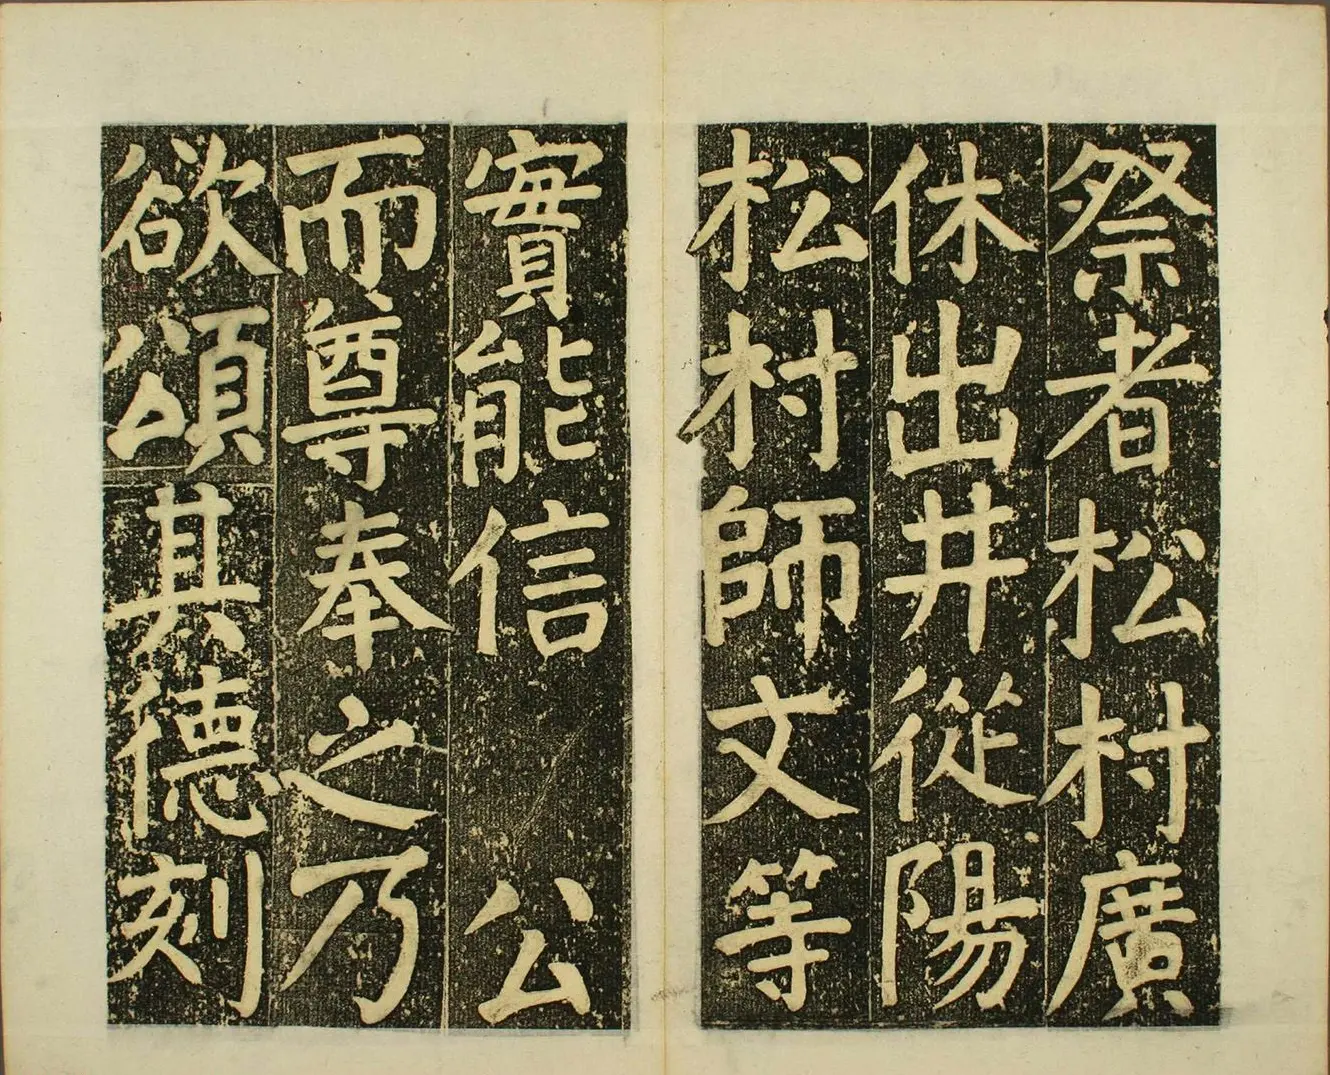 祭者松村廣
休出井從陽
松村師文等
實能信公
而尊奉之乃
欲頌其德刻